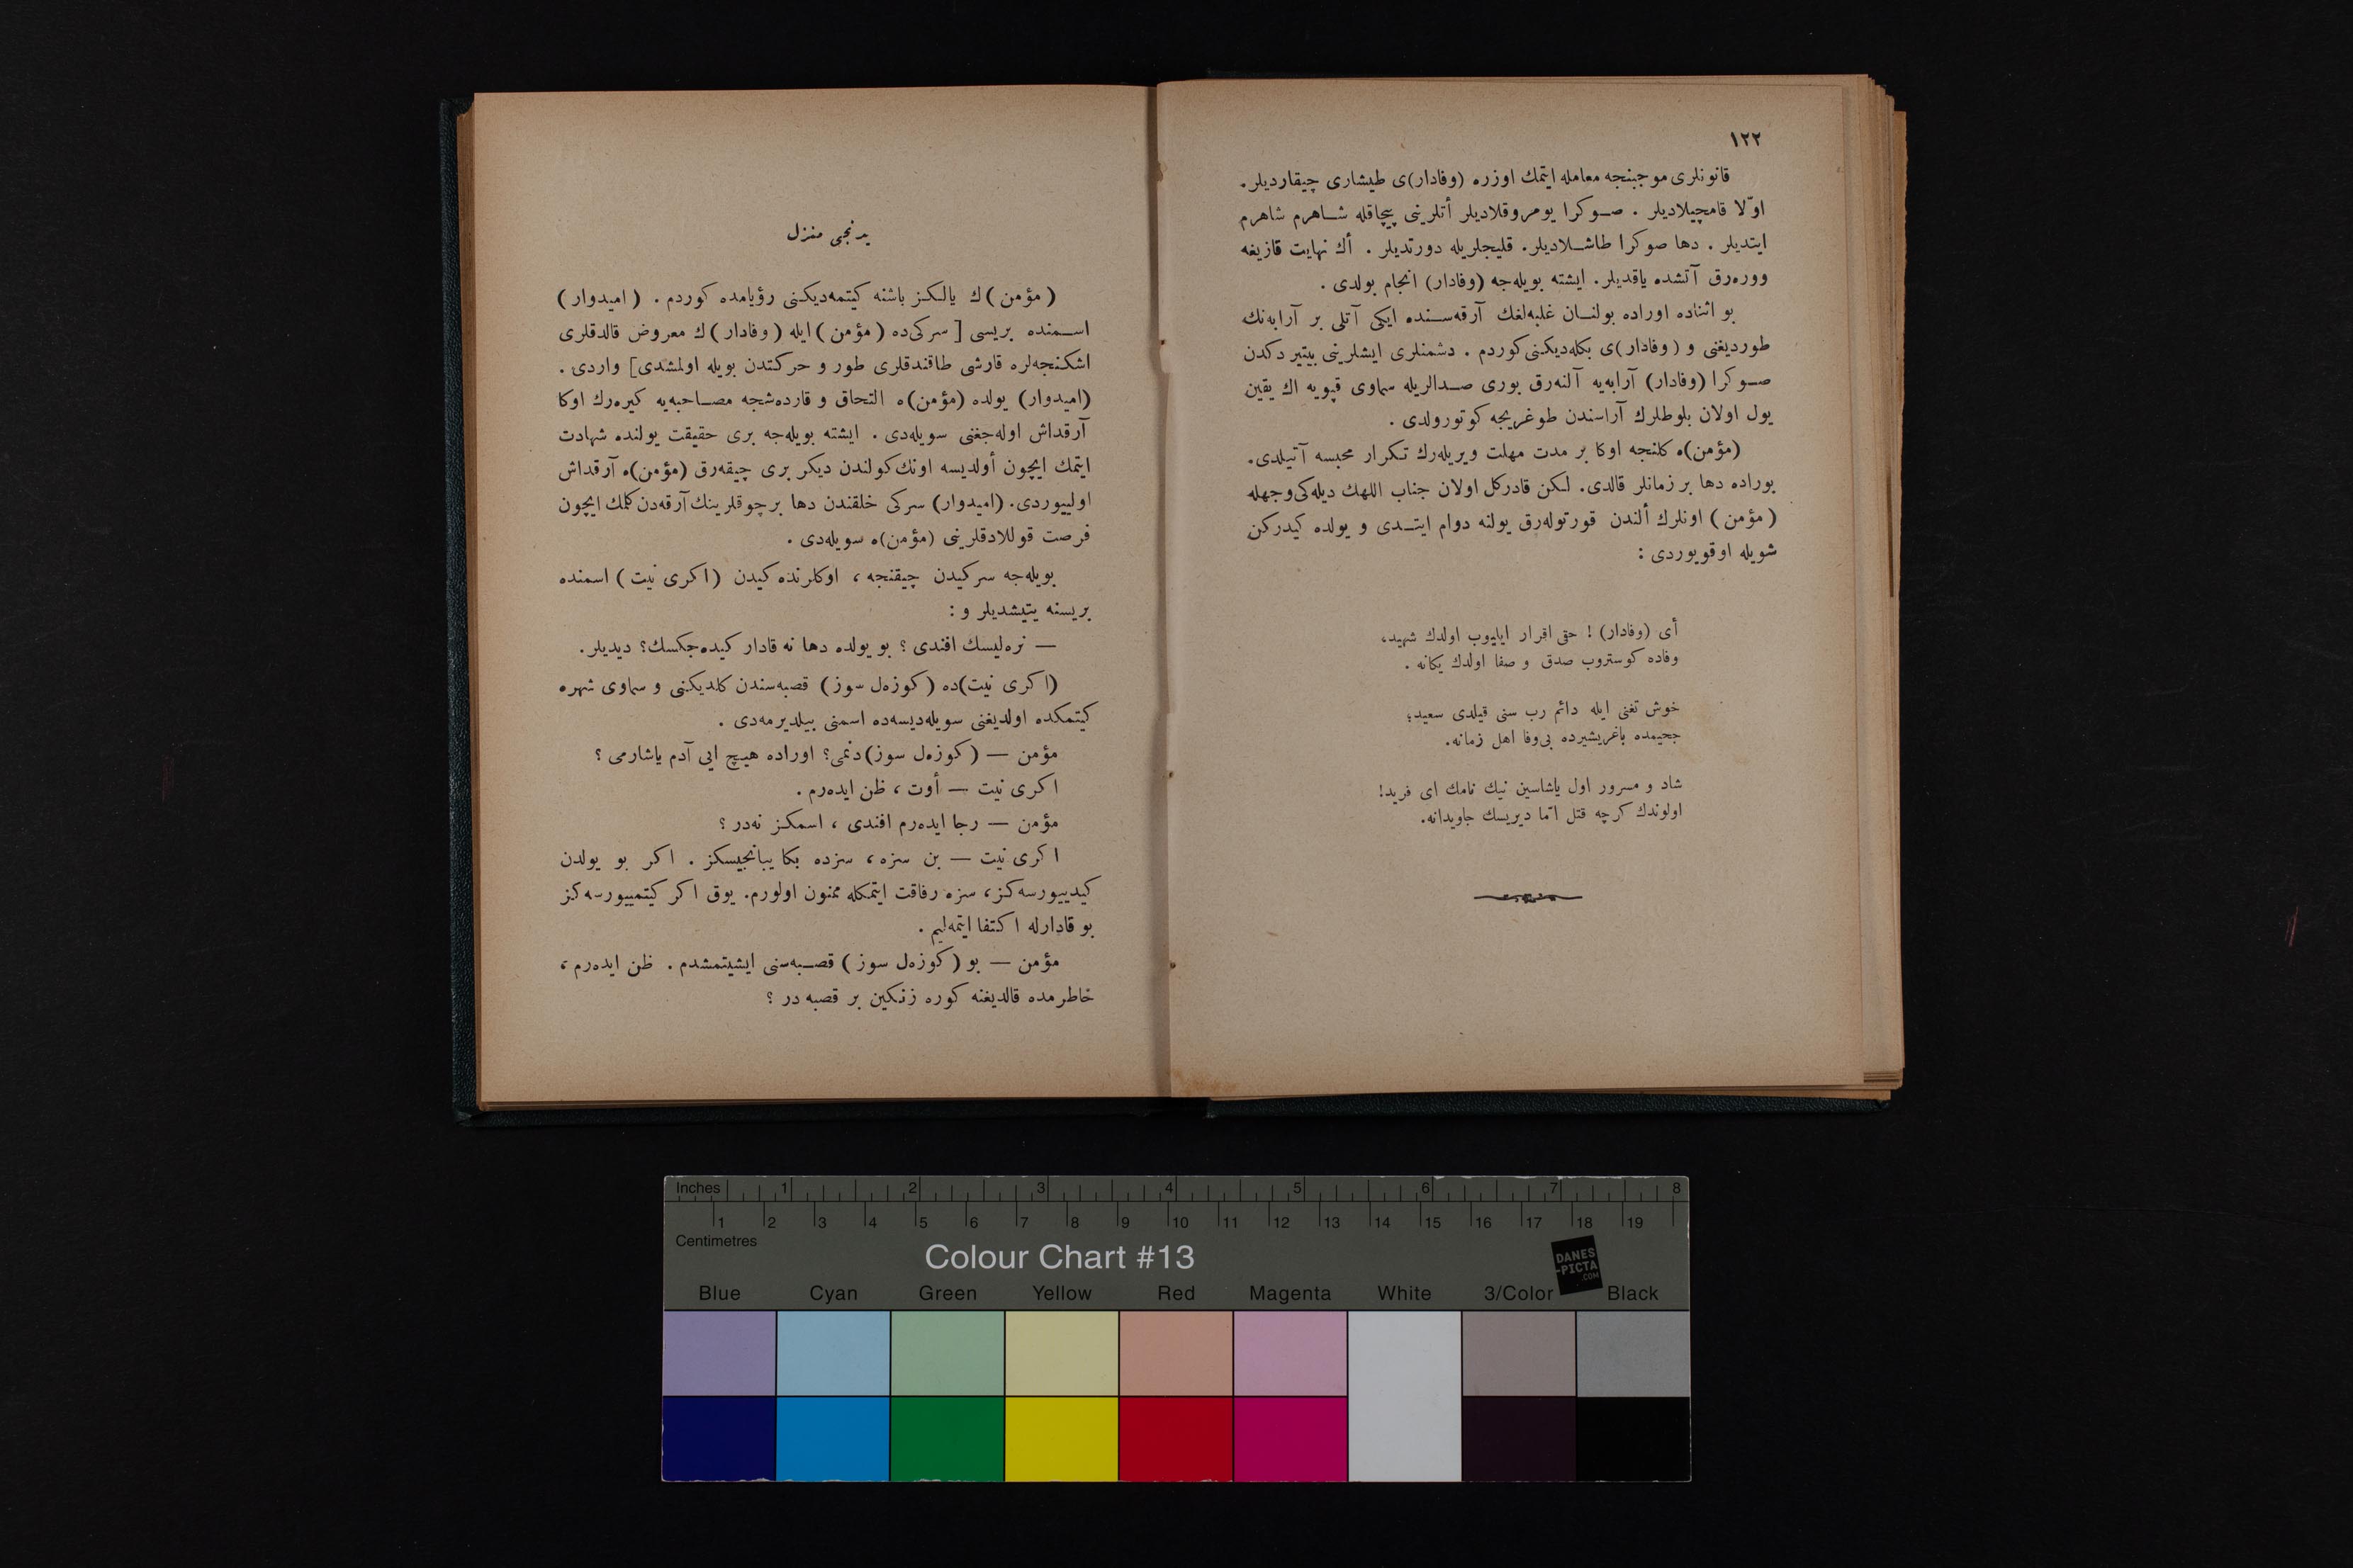 ١٢٢
قانونلری موجبنجه معامله ایتمك اوزره (وفادار)ی طیشاری چیقاردیلر.
اوّلا قامچیلادیلر . صوكرا یومروقلادیلر أتلرینی پیچاقله شاهرم شاهرم
ایتدیلر . دها صوكرا طاشلادیلر. قلیجلریله دورتدیلر . أك نهایت قازیغه
ووره‌رق آتشده یاقدیلر. ایشته بویله‌جه (وفادار) انجام بولدی .
بو اثناده اوراده بولنان غلبه‌لغك آرقه‌سنده ایكی آتلی بر آرابه‌نك
طوردیغنی و (وفادار)ی بكله‌دیكنی كوردم . دشمنلری ایشلرینی بیتیردكدن
صوكرا (وفادار) آرابه‌یه آلنه‌رق بوری صدالریله سماوی قپویه اك یقین
یول اولان بلوطلرك آراسندن طوغریجه كوتورولدی .
(مؤمن)ه كلنجه اوكا بر مدت مهلت ویریله‌رك تكرار محبسه آتیلدی.
بوراده دها بر زمانلر قالدی. لكن قادركل اولان جناب اللهك دیله‌كی وجهله
(مؤمن) اونلرك ألندن قورتوله‌رق یولنه دوام ایتدی و یولده كیدركن
شویله اوقویوردی :
أی (وفادار) ! حقی اقرار ایلیوب اولدك شهید،
وفاده كوستروب صدق و صفا اولدك یكانه .
خوش تغنی ایله دائم رب سنی قیلدی سعید؛
جحیمده باغریشیرده بی‌وفا اهل زمانه.
شاد و مسرور اول یاشاسین نیك نامك ای فرید!
اولوندك كرچه قتل امّا دیریسك جاویدانه.
یدنجی منزل
(مؤمن)ك یالكز باشنه كیتمه‌دیكنی رؤیامده كوردم . (امیدوار)
اسمنده بریسی [سركی‌ده (مؤمن) ایله (وفادار)ك معروض قالدقلری
اشكنجه‌لره قارشی طاقندقلری طور و حركتدن بویله اولمشدی] واردی .
(امیدوار) یولده (مؤمن)ه التحاق و قارده‌شجه مصاحبه‌یه كیره‌رك اوكا
آرقداش اوله‌جغنی سویله‌دی . ایشته بویله‌جه بری حقیقت یولنده شهادت
ایتمك ایچون أولدیسه اونك كولندن دیكر بری چیقه‌رق (مؤمن)ه آرقداش
اولییوردی. (امیدوار) سركی خلقندن دها برچوقلرینك آرقه‌دن كلمك ایچون
فرصت قوللادقلرینی (مؤمن)ه سویله‌دی .
بویله‌جه سركیدن چیقنجه ، اوكلرنده كیدن (اكری نیت) اسمنده
بریسنه یتیشدیلر و :
— نره‌لیسك افندی ؟ بو یولده دها نه قادار كیده‌جكسك؟ دیدیلر.
(اكری نیت)ده (كوزه‌ل سوز) قصبه‌سندن كلدیكنی و سماوی شهره
كیتمكده اولدیغنی سویله‌دیسه‌ده اسمنی بیلدیرمه‌دی .
مؤمن — (كوزه‌ل سوز)دنمی؟ اوراده هیچ ایی آدم یاشارمی ؟
اكری نیت — أوت ، ظن ایده‌رم .
مؤمن — رجا ایده‌رم افندی ، اسمكز نه‌در ؟
اكری نیت — بن سزه، سزده بكا یبانجیسكز . اكر بو یولدن
كیدییورسه‌كز، سزه رفاقت ایتمكله ممنون اولورم. یوق اكر كیتمییورسه‌كز
بو قادارله اكتفا ایتمه‌لیم .
مؤمن — بو (كوزه‌ل سوز) قصبه‌سنی ایشیتمشدم . ظن ایده‌رم ،
خاطرمده قالدیغنه كوره زنكین بر قصبه در ؟
Inches 1 2 3 4 5 6 7 8
1 2 3 4 5 6 7 8 9 10 11 12 13 14 15 16 17 18 19
Centimetres
Colour Chart #13
DANES
-PICTA
.COM
Blue Cyan Green Yellow Red Magenta White 3/Color Black